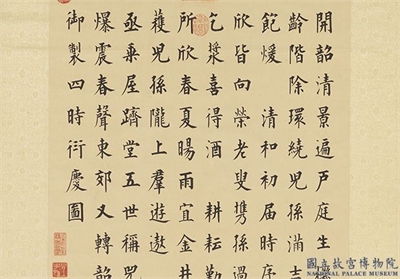 開韶清景遍戶庭生
齡階除環繞兒孫滿吉
飽煖 清和初屆時序
欣皆向榮老叟攜孫過
乞漿喜得酒 耕耘勤
所欣春夏暘雨宜金井
穫兒孫隴上羣遊遨
亟乘屋躋堂五世稱
爆震春聲東郊又轉韶
御製四時衍慶圖
國立故宮博物院
NATIONAL PALACE MUSEUM